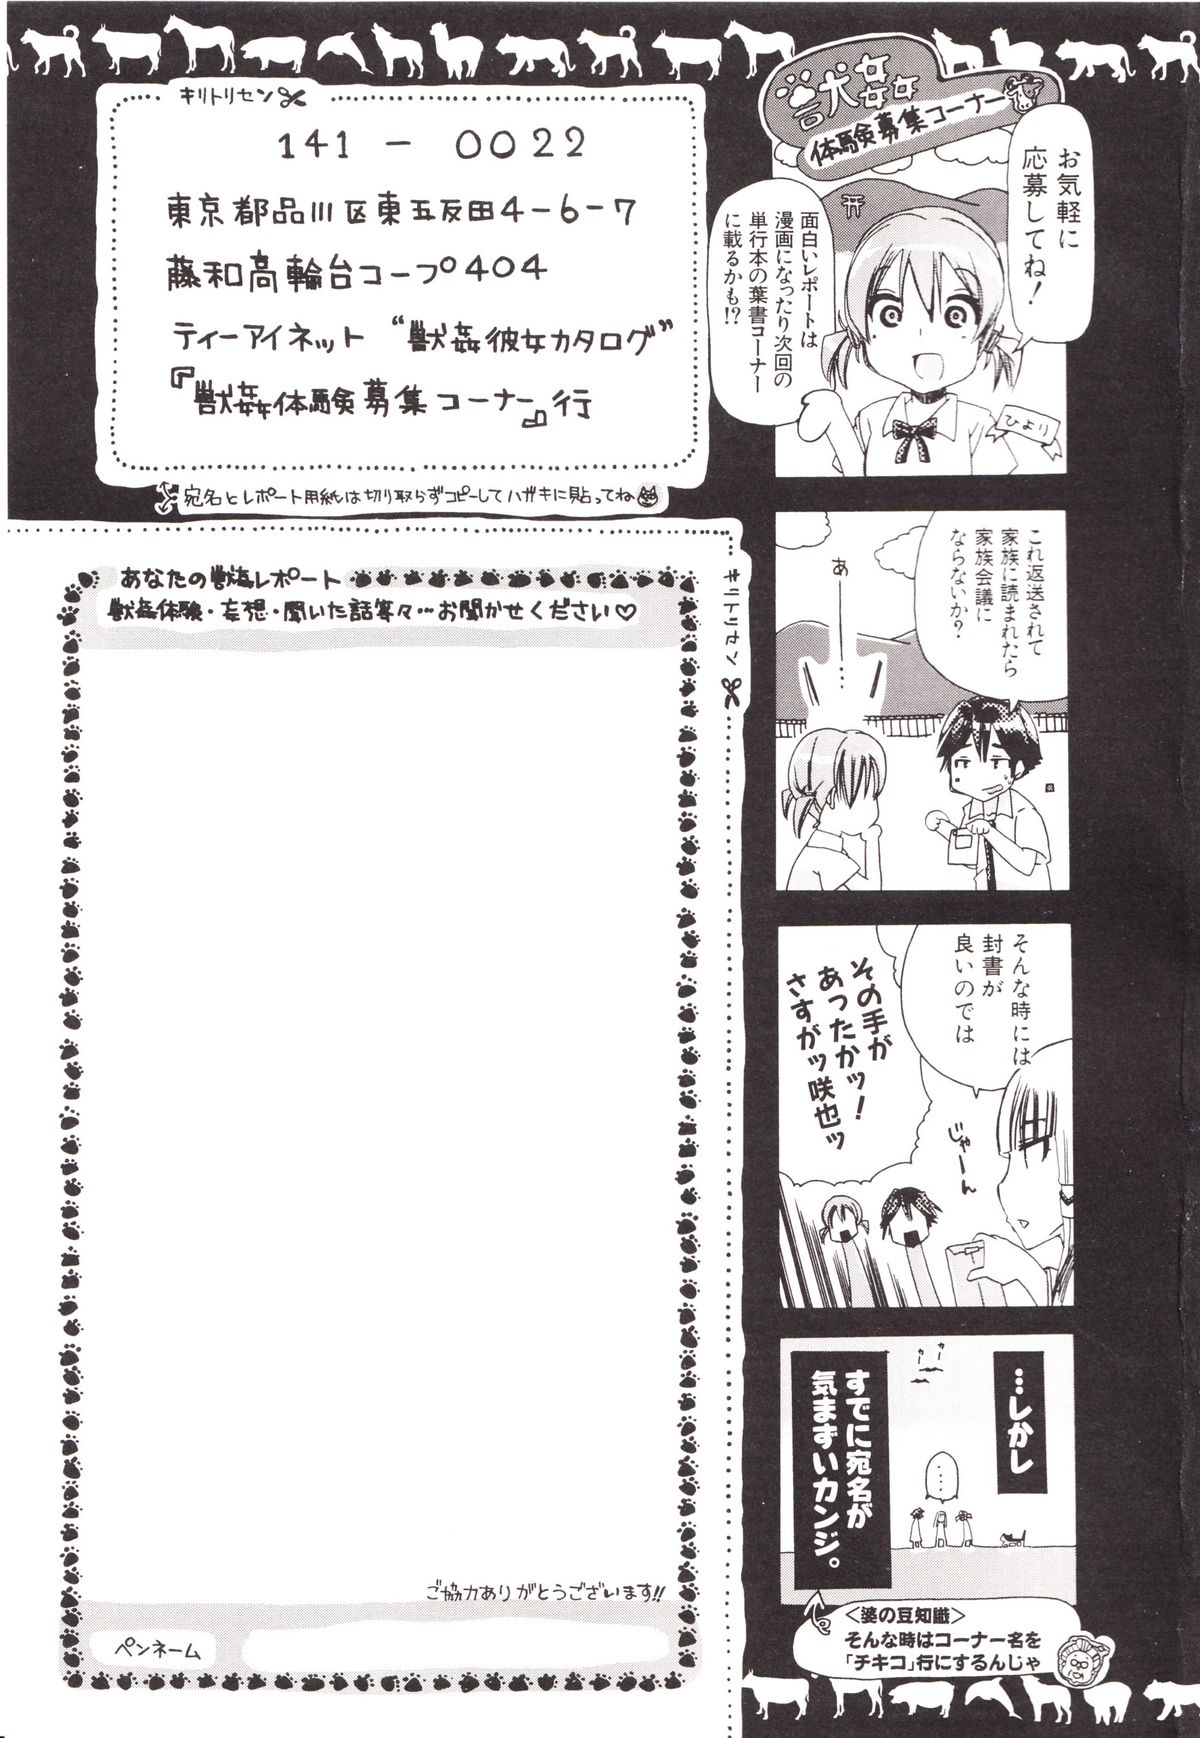 獣姦
体験募集コーナー
お気軽に
応募してね！
面白いレポートは
漫画になったり次回の
単行本の葉書コーナー
に載るかも!?
ひより
これ返送されて
家族に読まれたら
家族会議に
ならないか？
あ
あ…
そんな時には
封書が
良いのでは
じゃーん
その手が
あったかッ！
さすがッ咲也ッ
…しかし
カー
カー
…
すでに宛名が
気まずいカンジ。
<婆の豆知識>
そんな時はコーナー名を
「チキコ」行にするんじゃ
キリトリセン
141-0022
東京都品川区東五反田4-6-7
藤和高輪台コープ404
ティーアイネット “獣姦彼女カタログ”
『獣姦体験募集コーナー』行
宛名とレポート用紙は切り取らずコピーしてハガキに貼ってね
キリトリセン
あなたの獣姦レポート
獣姦体験・妄想・聞いた話等々…お聞かせください♡
ご協力ありがとうございます!!
ペンネーム